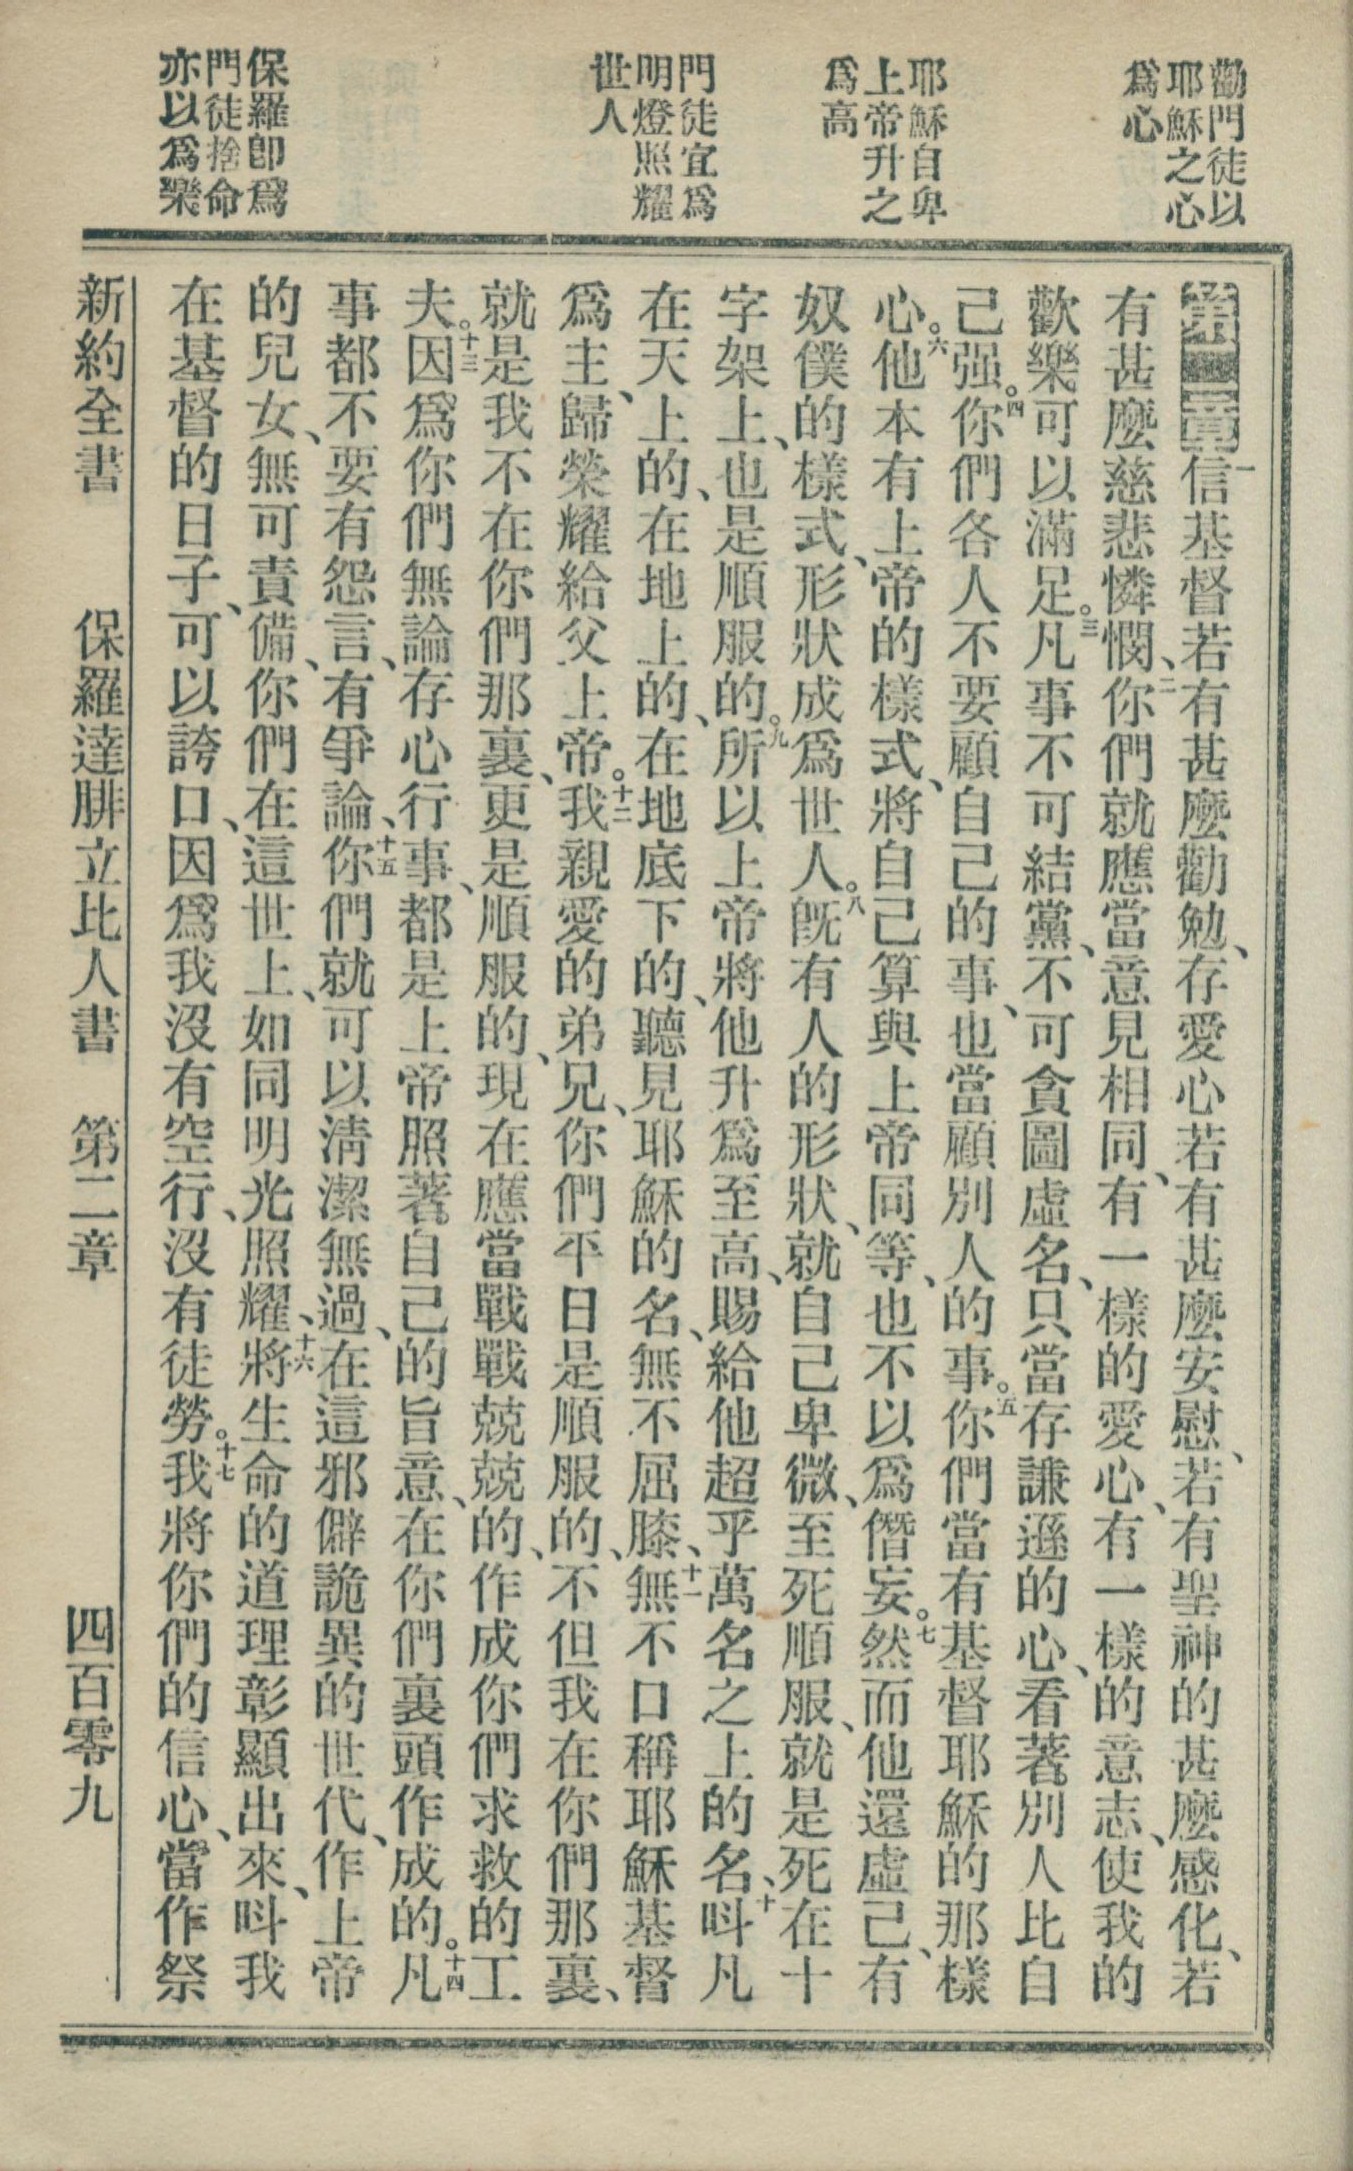 勸門徒以
耶穌之心
爲心
耶穌自卑
上帝升之
爲高
門徒宜爲
明燈照耀
世人
保羅卽爲
門徒捨命
亦以爲樂
第二章一信基督若有甚麽勸勉、存愛心若有甚麽安慰、若有聖神的甚麽感化、若
有甚麽慈悲憐憫、二你們就應當意見相同、有一樣的愛心、有一樣的意志、使我的
歡樂可以滿足。三凡事不可結黨、不可貪圖虛名、只當存謙遜的心、看著別人比自
己强。四你們各人不要顧自己的事、也當顧別人的事。五你們當有基督耶穌的那樣
心。六他本有上帝的樣式、將自己算與上帝同等、也不以爲僭妄。七然而他還虛己、有
奴僕的樣式、形狀成爲世人。八旣有人的形狀、就自己卑微、至死順服、就是死在十
字架上、也是順服的。九所以上帝將他升爲至高、賜給他超乎萬名之上的名、十呌凡
在天上的、在地上的、在地底下的、聽見耶穌的名、無不屈膝、十一無不口稱耶穌基督
爲主、歸榮耀給父上帝。十二我親愛的弟兄、你們平日是順服的、不但我在你們那裏、
就是我不在你們那裏、更是順服的、現在應當戰戰兢兢的、作成你們求救的工
夫。十三因爲你們無論存心行事、都是上帝照著自己的旨意、在你們裏頭作成的。十四凡
事都不要有怨言、有爭論、十五你們就可以淸潔無過、在這邪僻詭異的世代、作上帝
的兒女、無可責備、你們在這世上、如同明光照耀、十六將生命的道理彰顯出來、呌我
在基督的日子、可以誇口、因爲我沒有空行、沒有徒勞。十七我將你們的信心、當作祭
新約全書 保羅達腓立比人書 第二章 四百零九